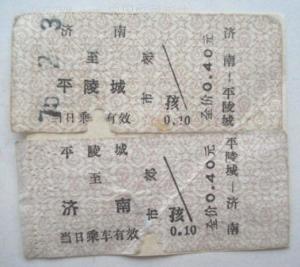 济南
至
平陵城
当日乘车有效
市郊
孩
0.10
全价0.40元
济南—平陵城
平陵城
至
济南
当日乘车有效
市郊
孩
0.10
全价0.40元
平陵城—济南